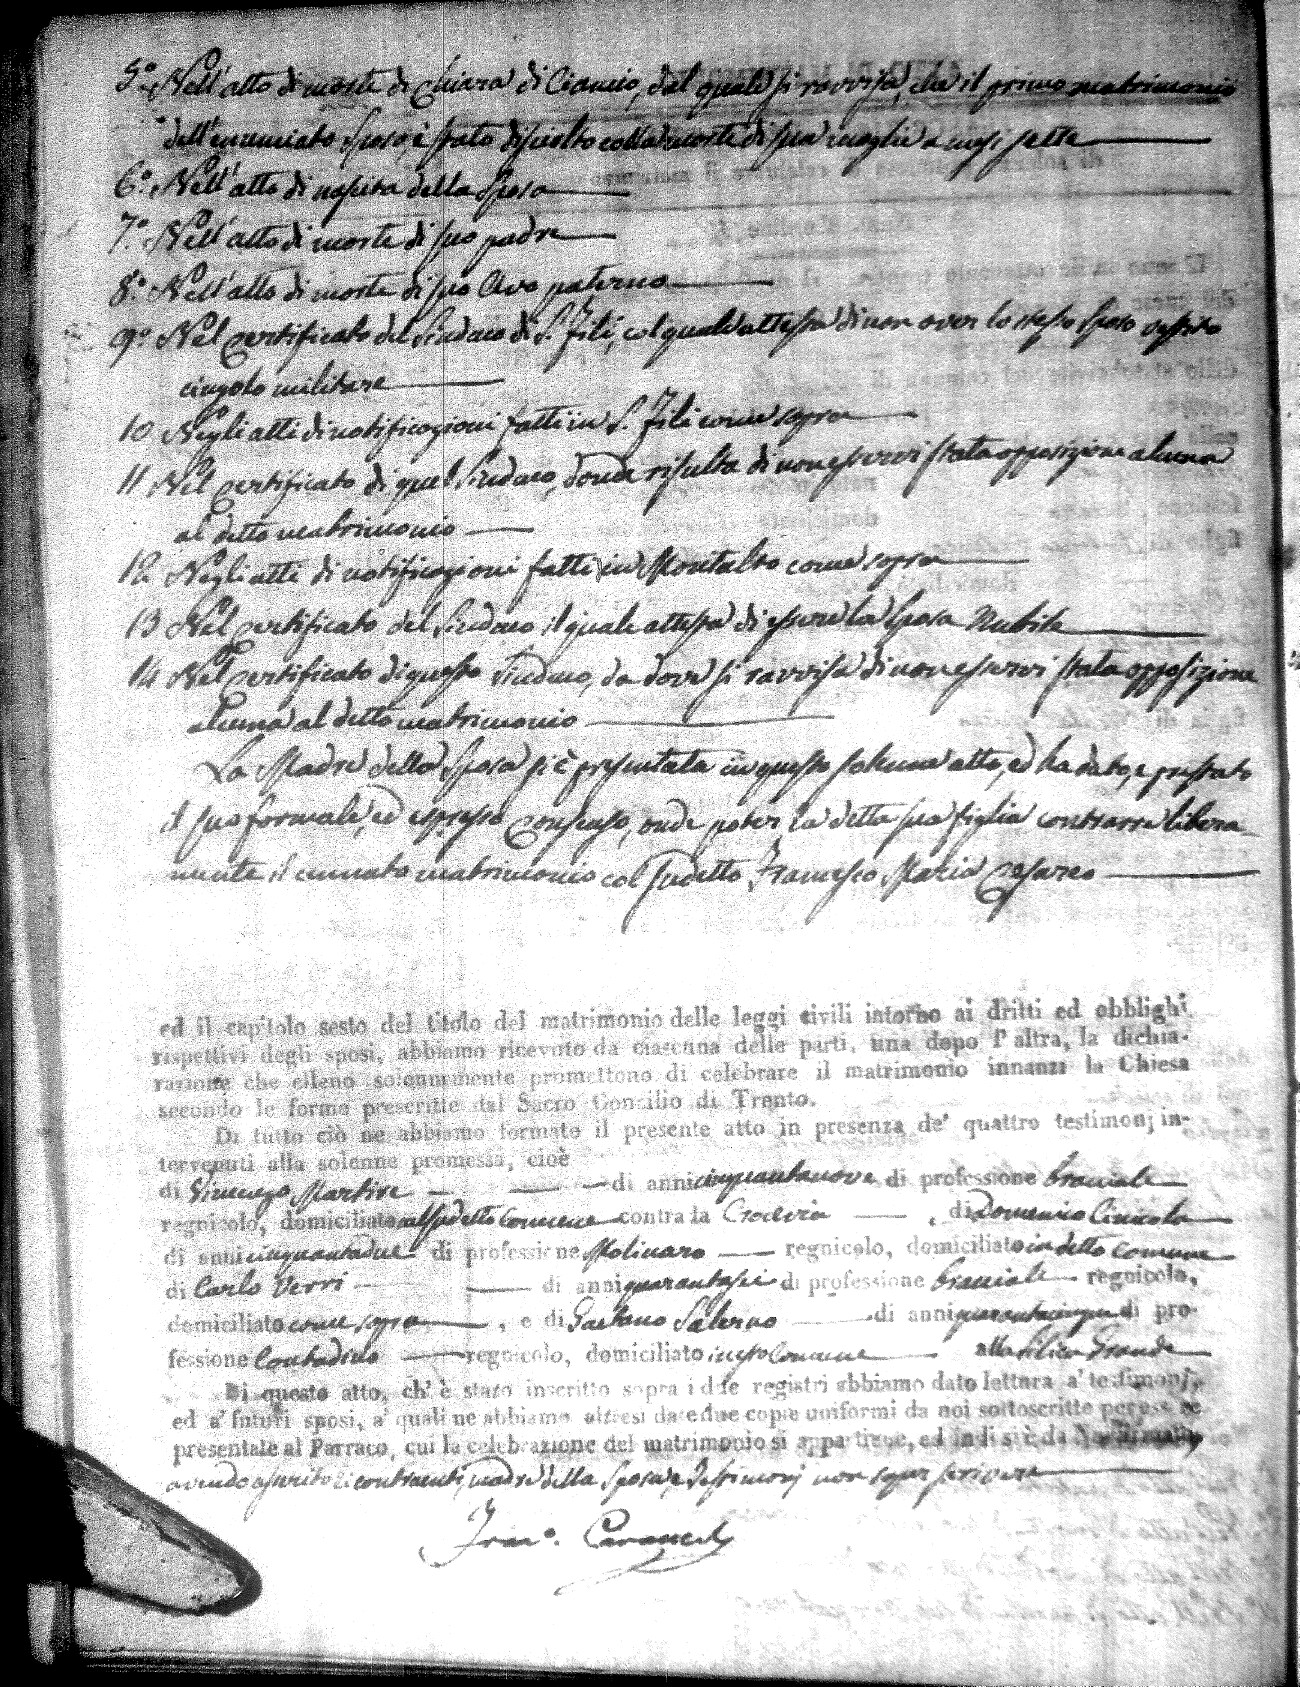 5.° Nell'atto di morte di Chiara di Ciancio, dal quale si ravvisa, che il primo matrimonio
dell'enunciato Sposo, è stato disciolto colla morte di sua moglie a mesi sette
6.° Nell'atto di nascita della Sposa
7.° Nell'atto di morte di suo padre
8.° Nell'atto di morte di suo Avo paterno
9.° Nel certificato del Sindaco di S. Fili, col quale attesta di non aver lo stesso sposo vestito
cingolo militare
10 Negli atti di notificazioni fatti in S. Fili come sopra
11 Nel certificato di quel Sindaco, donde risulta di non esservi stata opposizione alcuna
al detto matrimonio
12 Negli atti di notificazioni fatti in Montalto come sopra
13 Nel certificato del Sindaco il quale attesta di essere la Sposa Nubile
14 Nel certificato di questo Sindaco, da dove si ravvisa di non esservi stata opposizione
alcuna al detto matrimonio
La Madre della Sposa si è presentata in questo solenne atto, ed ha dato, e prestato
il suo formale, ed espresso consenso, onde poter la detta sua figlia contrarre libera
mente il cennato matrimonio col sudetto Francesco Maria Cesareo
ed il capitolo sesto del titolo del matrimonio delle leggi civili intorno ai dritti ed obblighi
rispettivi degli sposi, abbiamo ricevuto da ciascuna delle parti, una dopo l'altra, la dichia-
razione che elleno solennemente promettono di celebrare il matrimonio innanzi la Chiesa
secondo le forme prescritte dal Sacro Concilio di Trento.
Di tutto ciò ne abbiamo formato il presente atto in presenza de' quattro testimonj in-
tervenuti alla solenne promessa, cioè
di Vincenzo Martire di anni cinquantanove di professione bracciale
regnicolo, domiciliato al sudetto Comune contra la Crocevia, di Domenico
di anni cinquantadue di professione Molinaro regnicolo, domiciliato in detto comune
di Carlo Verri di anni quarantasei di professione bracciale regnicolo,
domiciliato come sopra, e di Gaetano Salerno di anni quarantacinque di pro-
fessione Contadino regnicolo, domiciliato in esso Comune alla Silica Grande
Di questo atto, ch'è stato inscritto sopra i due registri abbiamo dato lettura a' testimonj,
ed a' futuri sposi, a' quali ne abbiamo altresì date due copie uniformi da noi sottoscritte per essere
presentate al Parroco, cui la celebrazione del matrimonio si appartiene, ed indi si è da Noi firmato,
avendo asserito i contraenti, madre della Sposa, e Testimonj non saper scrivere
Fran.°